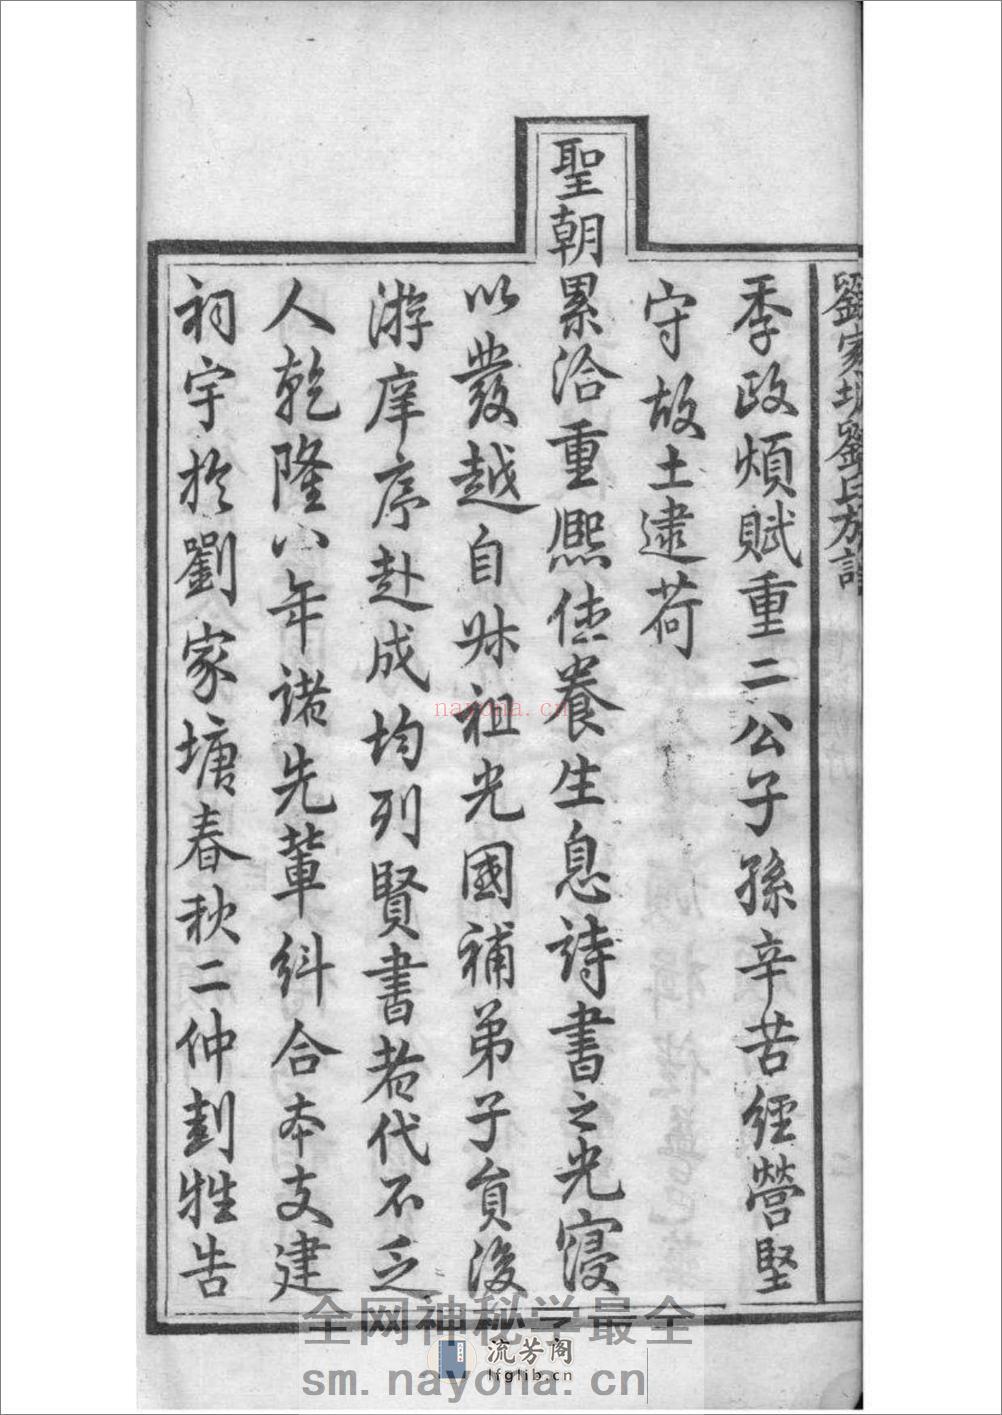 劉家塘劉氏族譜
季政煩賦重二公子孫辛苦經營堅
守故土逮荷
聖朝累洽重熙休養生息詩書之光寖
以發越自叔祖光國補弟子員後
游庠序赴成均列賢書者代不乏
人乾隆八年諸先輩糾合本支建
祠宇於劉家塘春秋二仲刲牲告
nayona.cn
全网神秘学最全
流芳阁
lfglib.cn
sm.nayona.cn